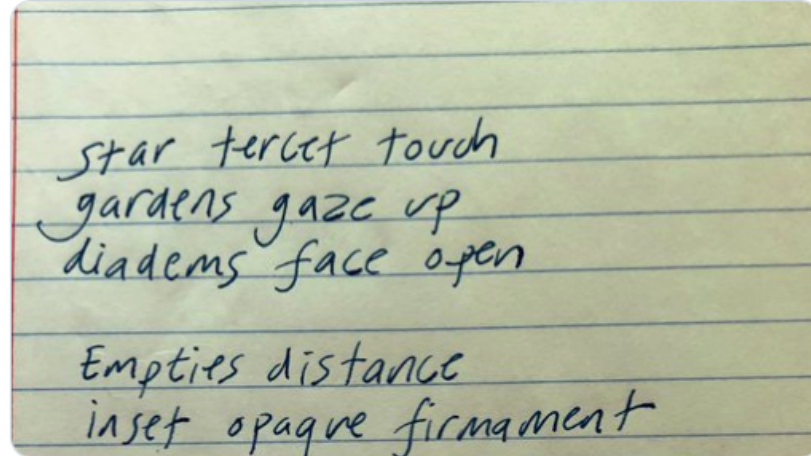 star tercet touch
gardens gaze up
diadems face open
Empties distance
inset opaque firmament